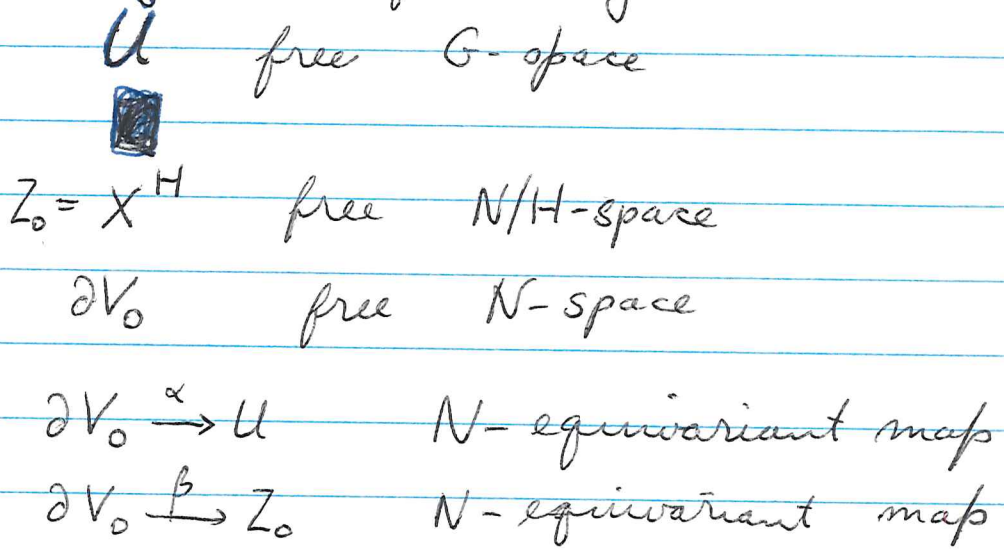 U free G-space
Z₀ = X^H free N/H-space
∂V₀ free N-space
∂V₀ →^α U N-equivariant map
∂V₀ →^β Z₀ N-equivariant map